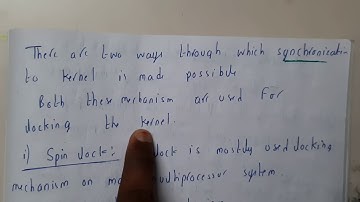 There are two ways through which synchronization
to kernel is made possible
Both these mechanism are used for
locking the kernel.
i) Spin lock:- lock is mostly used locking
mechanism on multiprocessor system.